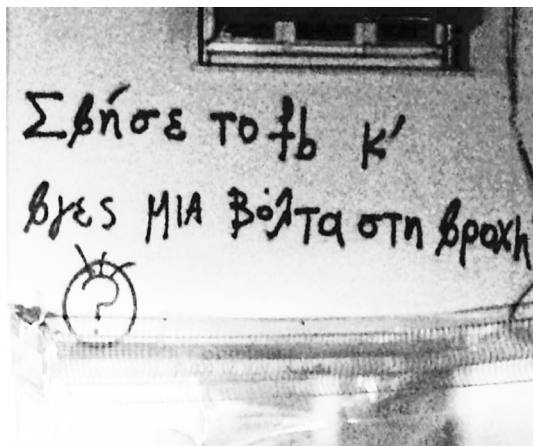 Σβήσε το fb κ'
βγες ΜΙΑ Βόλτα στη βροχή
?